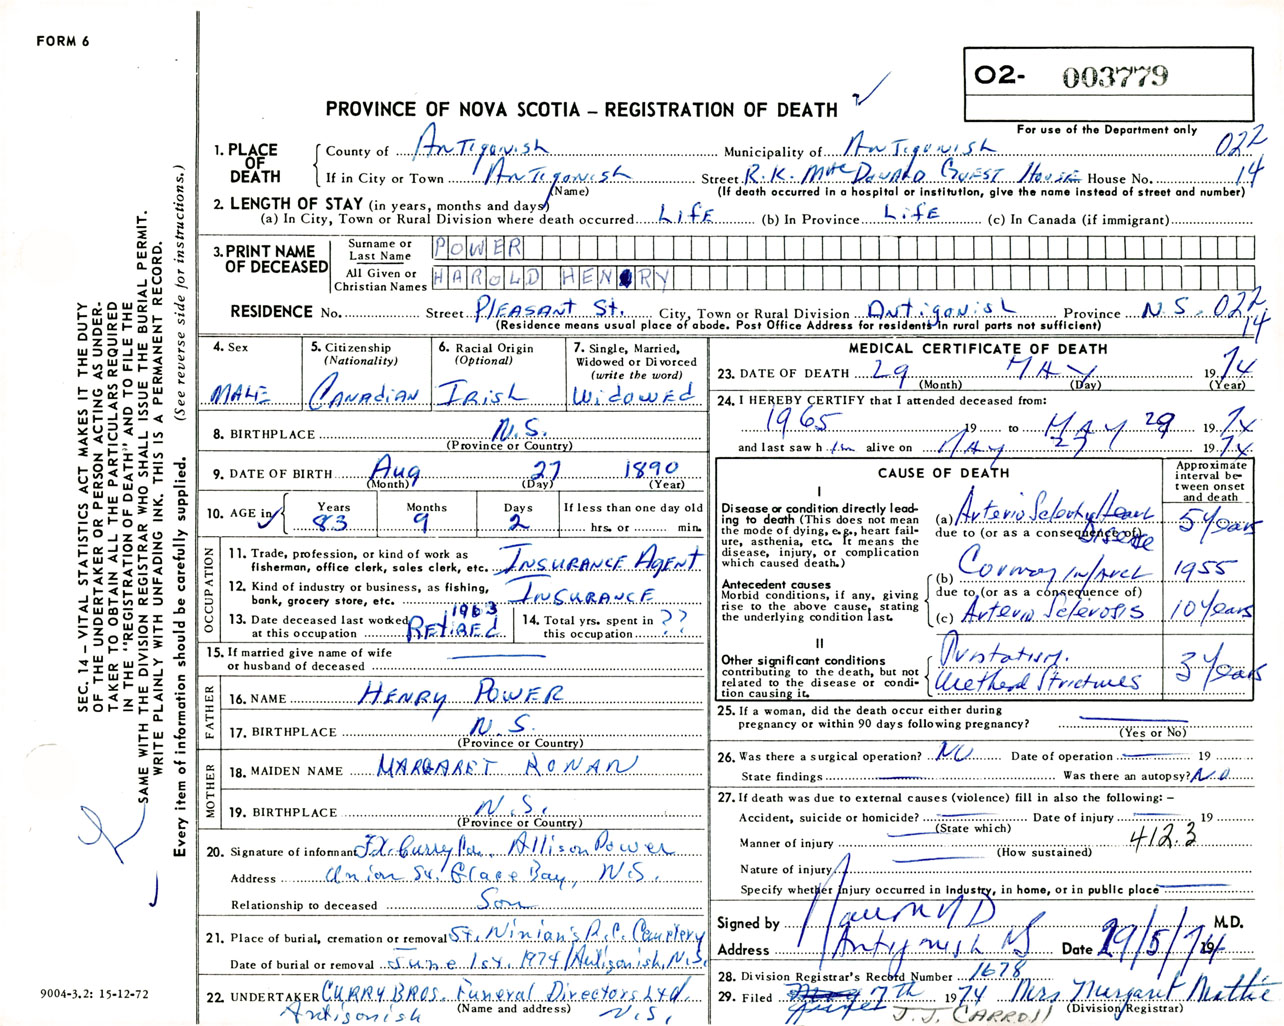 FORM 6
O2- 003779
PROVINCE OF NOVA SCOTIA – REGISTRATION OF DEATH
For use of the Department only
022
14
1. PLACE OF DEATH
County of Antigonish Municipality of Antigonish
If in City or Town Antigonish Street R.K. MacDonald Guest House House No.
(Name) (If death occurred in a hospital or institution, give the name instead of street and number)
2. LENGTH OF STAY (in years, months and days)
(a) In City, Town or Rural Division where death occurred Life (b) In Province Life (c) In Canada (if immigrant)
3. PRINT NAME OF DECEASED
Surname or Last Name POWER
All Given or Christian Names HAROLD HENRY
RESIDENCE No. Street Pleasant St. City, Town or Rural Division Antigonish Province N.S. 022
14
(Residence means usual place of abode. Post Office Address for residents in rural parts not sufficient)
4. Sex
MALE
5. Citizenship (Nationality)
Canadian
6. Racial Origin (Optional)
Irish
7. Single, Married, Widowed or Divorced (write the word)
Widowed
8. BIRTHPLACE N.S.
(Province or Country)
9. DATE OF BIRTH Aug 27 1890
(Month) (Day) (Year)
10. AGE in
Years Months Days If less than one day old
83 9 2 hrs. or min.
OCCUPATION
11. Trade, profession, or kind of work as fisherman, office clerk, sales clerk, etc. Insurance Agent
12. Kind of industry or business, as fishing, bank, grocery store, etc. Insurance
13. Date deceased last worked at this occupation 1963 Retired
14. Total yrs. spent in this occupation ??
15. If married give name of wife or husband of deceased
FATHER
16. NAME Henry Power
17. BIRTHPLACE N.S.
(Province or Country)
MOTHER
18. MAIDEN NAME Margaret Ronan
19. BIRTHPLACE N.S.
(Province or Country)
20. Signature of informant F.X. Curry Per. Allison Power
Address Union St. Glace Bay, N.S.
Relationship to deceased Son
21. Place of burial, cremation or removal St. Ninian's R.C. Cemetery
Date of burial or removal June 1st. 1974 / Antigonish, N.S.
22. UNDERTAKER CURRY BROS. Funeral Directors Ltd.
(Name and address)
Antigonish N.S.
MEDICAL CERTIFICATE OF DEATH
23. DATE OF DEATH 29 MAY 1974
(Month) (Day) (Year)
24. I HEREBY CERTIFY that I attended deceased from:
1965 19 to MAY 29 1974
and last saw him alive on May 27 1974
CAUSE OF DEATH
Approximate interval between onset and death
I
Disease or condition directly leading to death (This does not mean the mode of dying, e.g., heart failure, asthenia, etc. It means the disease, injury, or complication which caused death.)
(a) Arterio Sclerotic Heart Disease 5 Years
due to (or as a consequence of)
Antecedent causes
Morbid conditions, if any, giving rise to the above cause, stating the underlying condition last.
(b) Coronary infarct 1955
due to (or as a consequence of)
(c) Arterio Sclerosis 10 Years
II
Other significant conditions contributing to the death, but not related to the disease or condition causing it.
Prostatism.
Urethral Strictures 3 Years
25. If a woman, did the death occur either during pregnancy or within 90 days following pregnancy?
(Yes or No)
26. Was there a surgical operation? NO Date of operation 19
State findings Was there an autopsy? NO
27. If death was due to external causes (violence) fill in also the following: –
Accident, suicide or homicide? Date of injury 19
(State which)
Manner of injury 412.3
(How sustained)
Nature of injury
Specify whether injury occurred in industry, in home, or in public place
Signed by MD M.D.
Address Antigonish NS Date 29/5/74 19
28. Division Registrar's Record Number 1678
29. Filed 7th 1974 Mrs Margaret Mattie
(Division Registrar)
J.J. CARROLL
SEC. 14 – VITAL STATISTICS ACT MAKES IT THE DUTY
OF THE UNDERTAKER OR PERSON ACTING AS UNDER-
TAKER TO OBTAIN ALL THE PARTICULARS REQUIRED
IN THE "REGISTRATION OF DEATH" AND TO FILE THE
SAME WITH THE DIVISION REGISTRAR WHO SHALL ISSUE THE BURIAL PERMIT.
WRITE PLAINLY WITH UNFADING INK. THIS IS A PERMANENT RECORD.
Every item of information should be carefully supplied. (See reverse side for instructions.)
9004-3.2: 15-12-72